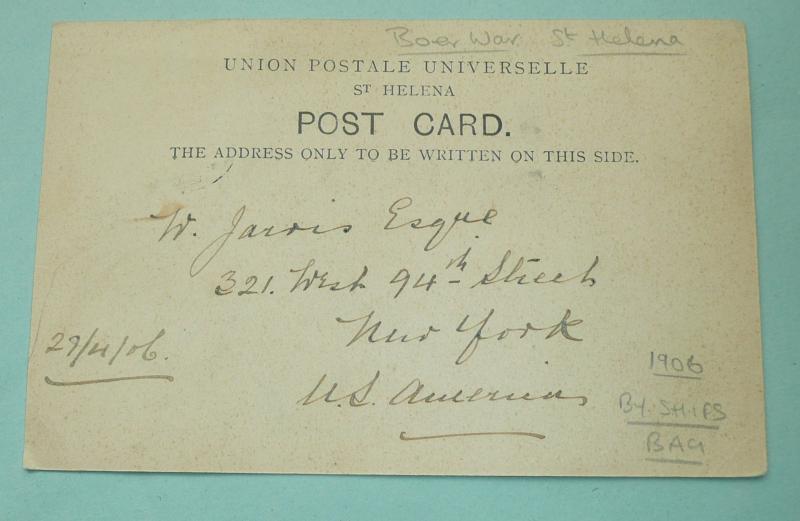 Boer War St Helena
UNION POSTALE UNIVERSELLE
ST HELENA
POST CARD.
THE ADDRESS ONLY TO BE WRITTEN ON THIS SIDE.
W. Jarvis Esque
321. West 94th Street
New York
U.S. America
29/4/06.
1906
BY SHIPS
BAG